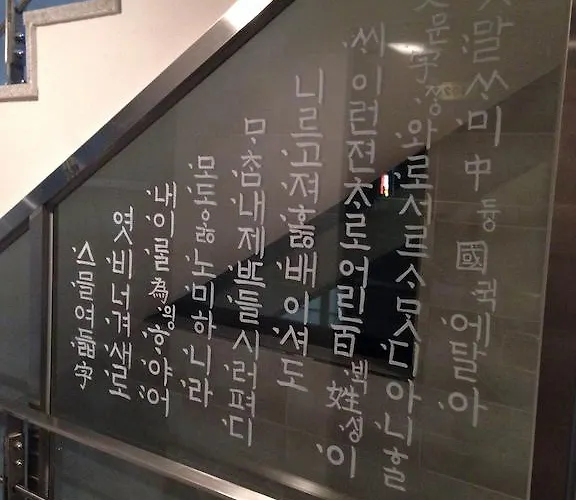 말ᄊᆞ미中듕國귁에달아
文문字ᄍᆞᆼ와로서르ᄉᆞᄆᆞᆺ디아니ᄒᆞᆯ
ᄊᆡ이런젼ᄎᆞ로어린百ᄇᆡᆨ姓셩이
니르고져호ᇙ배이셔도
ᄆᆞᄎᆞᆷ내제ᄠᅳ들시러펴디
몯ᄒᆞᇙ노미하니라
내이ᄅᆞᆯ為윙ᄒᆞ야어
엿비너겨새로
스믈여듧字